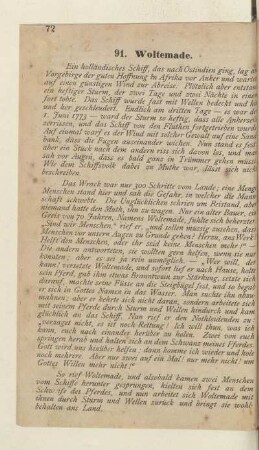 72
91. Woltemade.
Ein holländisches Schiff, das nach Ostindien ging, lag am
Vorgebirge der guten Hoffnung in Afrika vor Anker und wartete
auf einen günstigen Wind zur Abreise. Plötzlich aber entstand
ein heftiger Sturm, der zwei Tage und zwei Nächte in einem
fort tobte. Das Schiff wurde fast mit Wellen bedeckt und hin
und her geschleudert. Endlich am dritten Tage — es war der
1. Juni 1773 — ward der Sturm so heftig, dass alle Ankerseile
zerrissen, und das Schiff von den Fluthen fortgetrieben wurde.
Auf einmal warf es der Wind mit solcher Gewalt auf eine Sand-
bank, dass die Fugen auseinander wichen. Nun stand es fest,
aber ein Stück nach dem andern riss sich davon los, und man
sah vor Augen, dass es bald ganz in Trümmer gehen müsse.
Wie dem Schiffsvolk dabei zu Muthe war, lässt sich nicht
beschreiben.
Das Wrack war nur 300 Schritte vom Lande; eine Menge
Menschen stand hier und sah die Gefahr, in welcher die Mann-
schaft schwebte. Die Unglücklichen schrien um Beistand, aber
niemand hatte den Muth, ihn zu wagen. Nur ein alter Bauer, ein
Greis von 70 Jahren, Namens Woltemade, fühlte sich beherzter.
„Sind wir Menschen," rief er, „und sollen müssig zusehen, dass
Menschen vor unsern Augen zu Grunde gehen? Herzu, um
Helft den Menschen, oder ihr seid keine Menschen mehr!"
Die andern antworteten, sie wollten gern helfen, wenn sie nur
könnten, aber es sei ja rein unmöglich. „Wer will, der
kann," versetzte Woltemade, und sofort lief er nach Hause, holte
sein Pferd, gab ihm etwas Branntwein zur Stärkung, setzte sich
darauf, machte seine Füsse an die Steigbügel fest, und so begab
er sich in Gottes Namen in die Wogen. Man suchte ihn abzu-
mahnen; aber er kehrte sich nicht daran, sondern arbeitete sich
mit seinem Pferde durch Sturm und Wellen hindurch und kam
glücklich an das Schiff. Nun rief er den Nothleidenden zu,
„verzaget nicht, es ist noch Rettung! Ich will thun, was ich
kann, euch nach einander herüber zu holen. Zwei von euch
springen herab und halten sich an dem Schwanz meines Pferdes.
Gott wird uns hinüber helfen; dann komme ich wieder und hole
noch mehrere. Aber nur zwei auf ein Mal! nur mehr nicht! um
Gottes Willen mehr nicht!"
So rief Woltemade, und alsobald kamen zwei Menschen
vom Schiffe herunter gesprungen, hielten sich fest an dem
Schweife des Pferdes, und nun arbeitete sich Woltemade mit
ihnen durch Sturm und Wellen zurück und bringt sie wohl-
behalten ans Land.